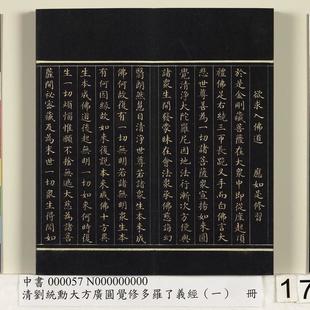 欲求入佛道　應如是修習
於是金剛藏菩薩在大眾中即從座起頂
禮佛足右繞三帀長跪叉手而白佛言大
悲世尊善為一切諸菩薩眾宣揚如來圓
覺清淨大陀羅尼因地法行漸次方便與
諸眾生開發蒙昧在會法眾承佛慈誨幻
翳朗然慧目清淨世尊若諸眾生本來成
佛何故復有一切無明若諸無明眾生本
有何因緣故如來復說本來成佛十方異
生本成佛道後起無明一切如來何時復
生一切煩惱惟願不捨無遮大慈為諸菩
薩開祕密藏及為末世一切眾生得聞如
中書 000057 N000000000
清劉統勳大方廣圓覺修多羅了義經（一）　冊
17